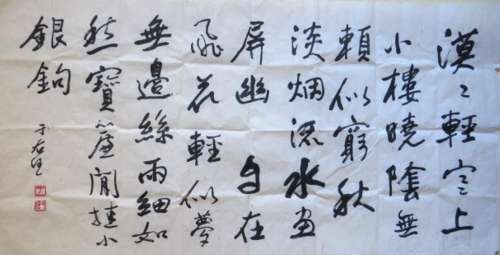 漠〻輕寒上
小樓曉陰無
賴似窮秋
淡烟流水畫
屏幽自在
飛花輕似夢
無邊絲雨細如
愁寶簾閒挂小
銀鉤
于右任